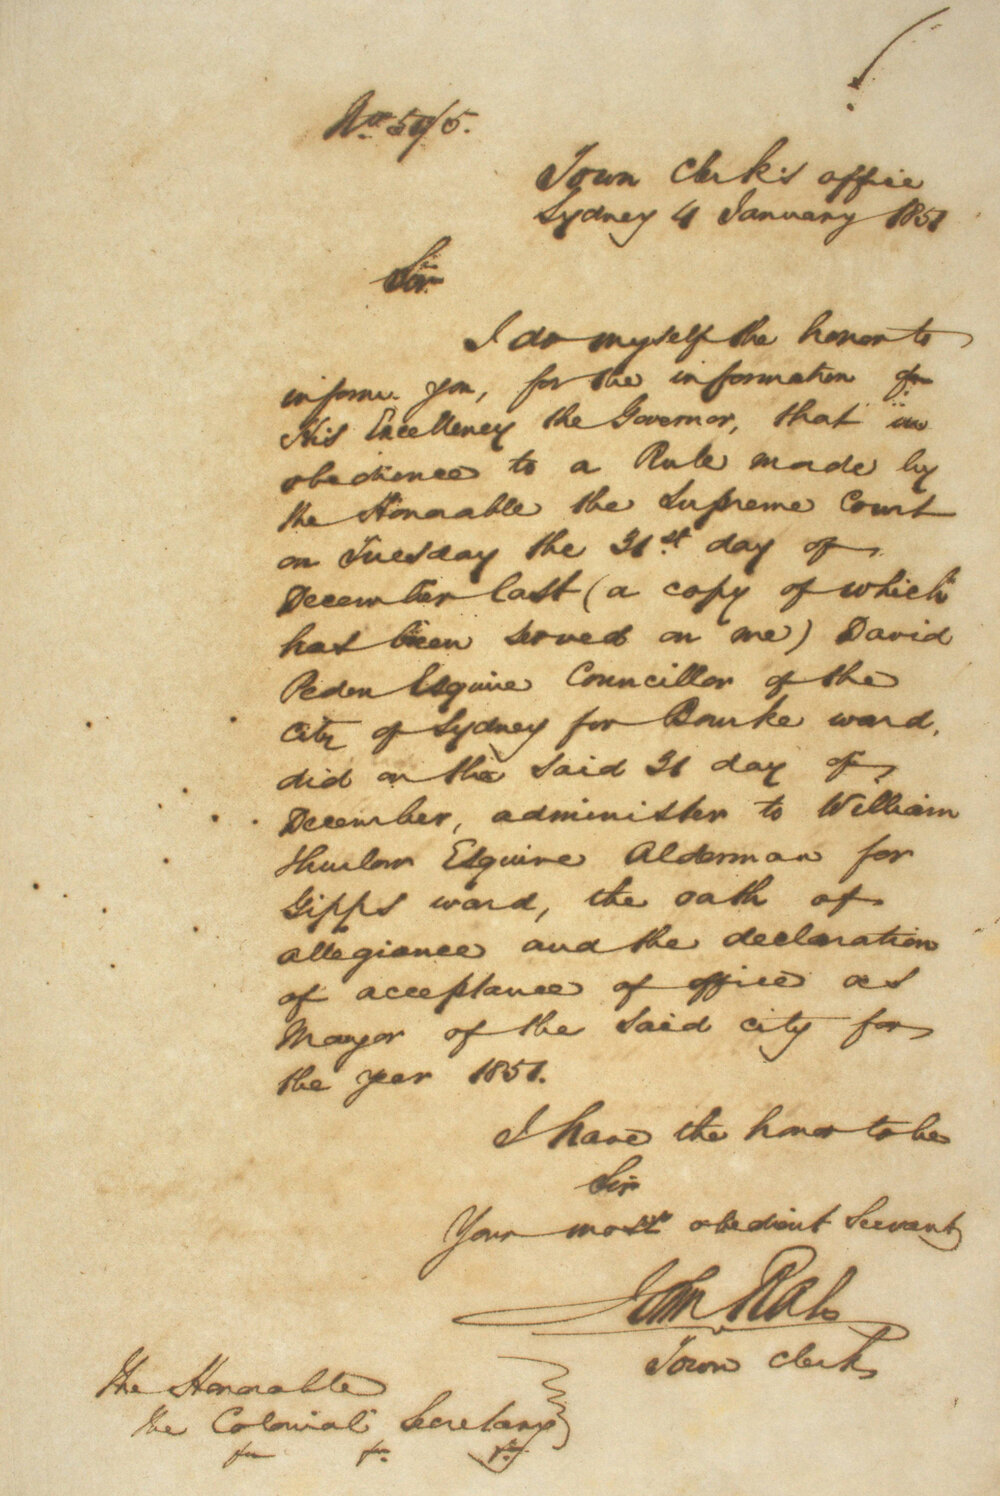 No. 51/5.
Town Clerk's office
Sydney 4 January 1851
Sir
I do myself the honor to
inform you, for the information of
His Excellency the Governor, that in
obedience to a Rule made by
the Honorable the Supreme Court
on Tuesday the 31st. day of
December last (a copy of which
has been served on me) David
Peden Esquire Councillor of the
City of Sydney for Bourke ward,
did on the said 31 day of
December, administer to William
Thurlow Esquire Alderman for
Gipps ward, the oath of
allegiance and the declaration
of acceptance of office as
Mayor of the said city for
the year 1851.
I have the honor to be
Sir
Your most obedient Servant
John Rae
Town Clerk
The Honorable
the Colonial Secretary